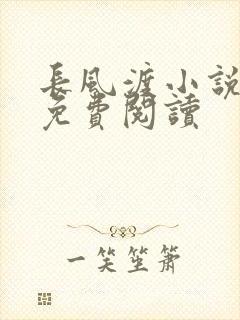 長風渡小說
免費閱讀
一笑坐萧